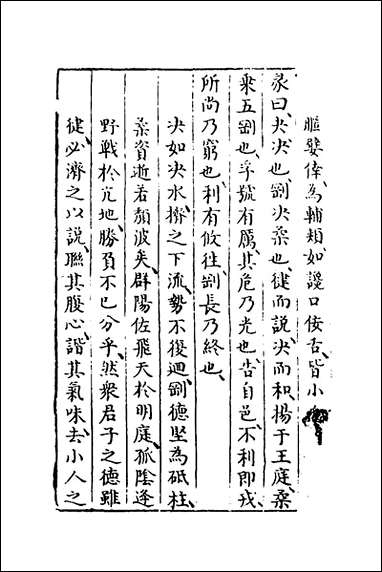 軀嬖倖、為輔頰、如讒口佞舌、皆小
彖曰、夬決也、剛決柔也、健而說、決而和、揚于王庭、柔
乘五剛也、孚號有厲、其危乃光也、告自邑、不利即戎、
所尚乃窮也、利有攸往、剛長乃終也、
決如決水、擠之下流、勢不復迴、剛德堅為砥柱、
柔資逝若頹波矣、群陽佐飛天於明庭、孤陰逢
野戰於亢地、勝負不已分乎、然衆君子之德雖
健、必濟之以說、聯其腹心、諧其氣味、去小人之